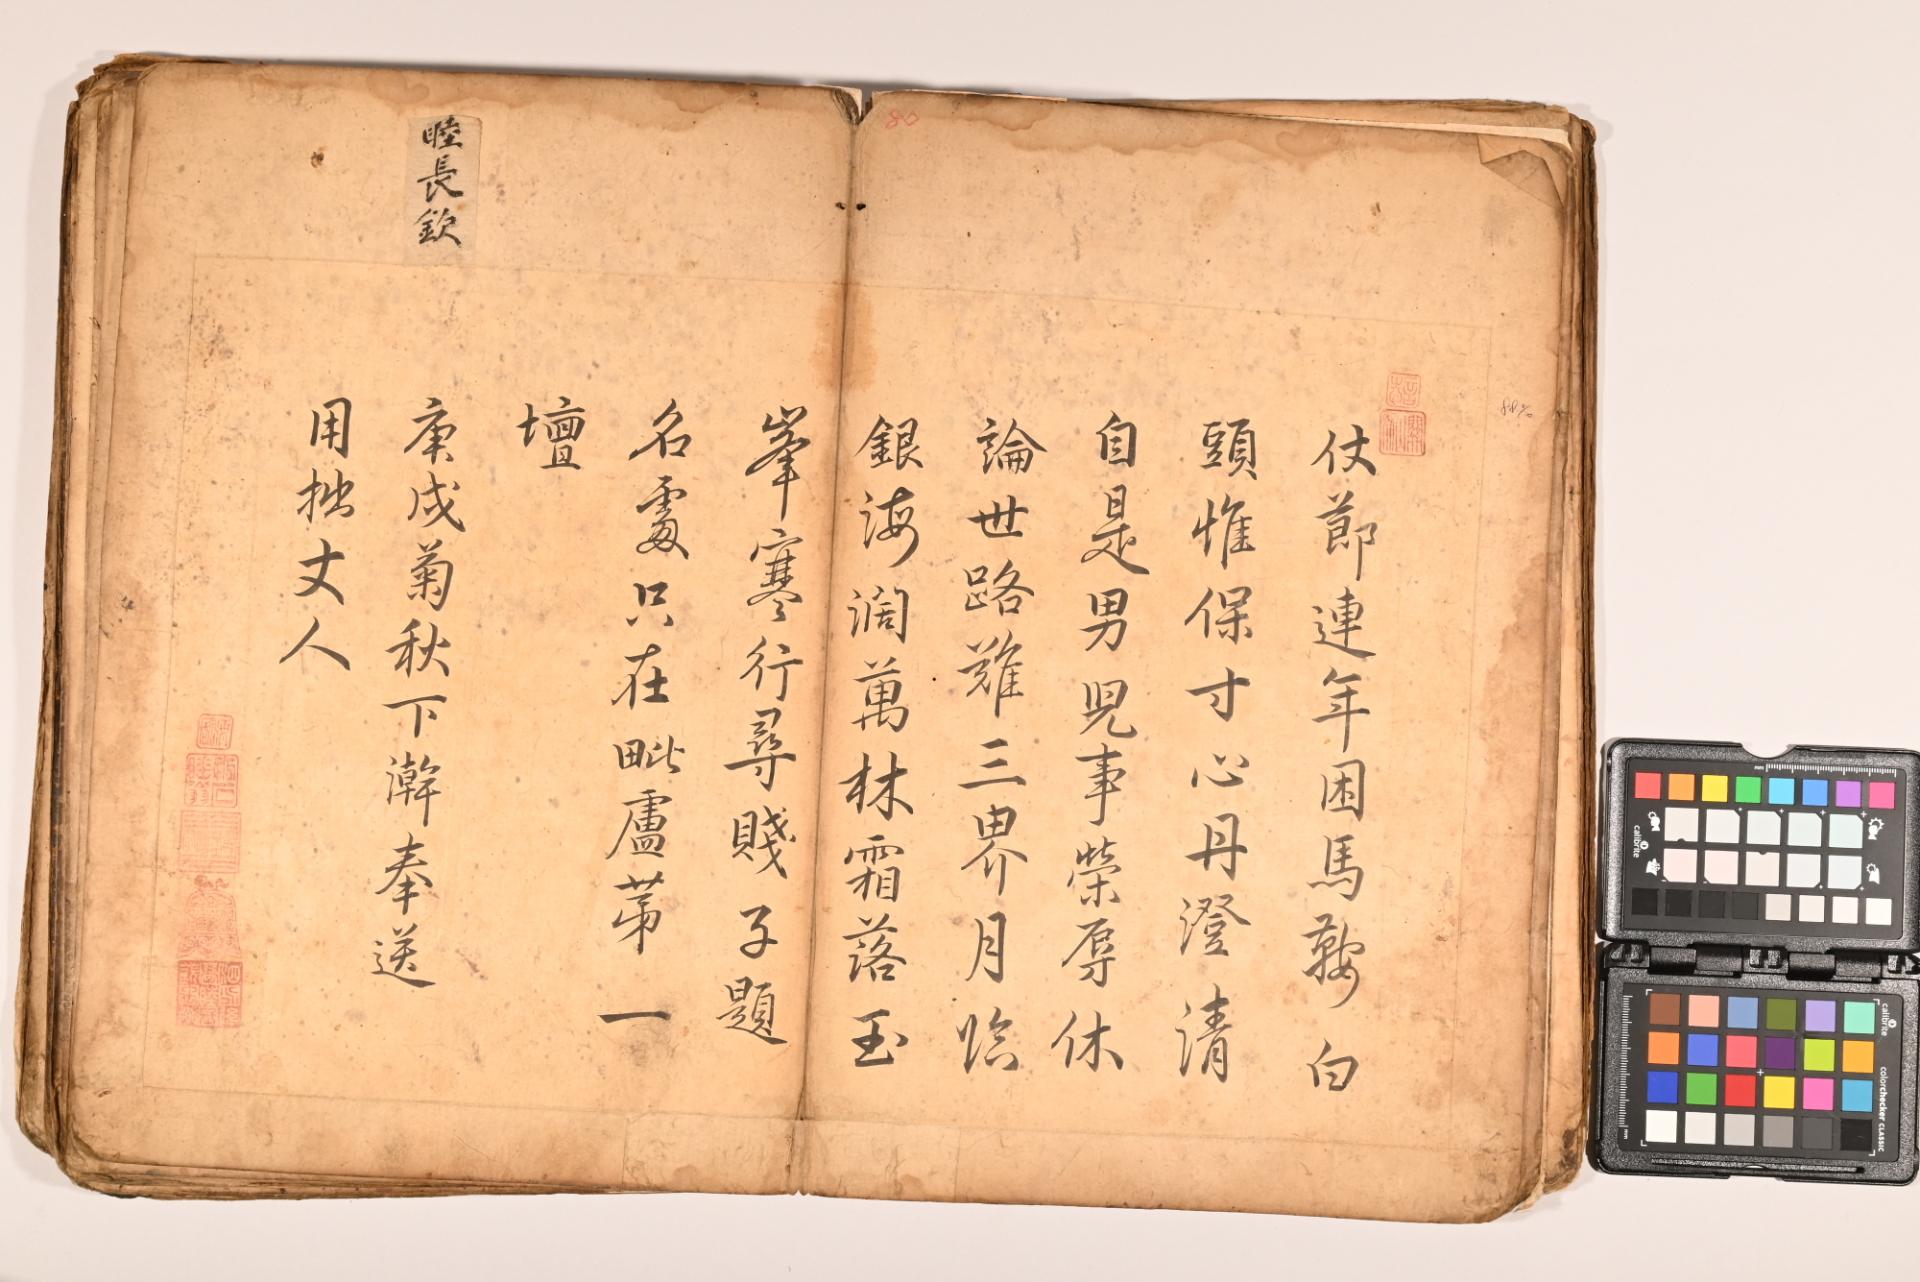 仗節連年困馬鞍白
頭惟保寸心丹澄清
自是男児事榮辱休
論世路難三界月临
銀海濶萬林霜落玉
峯寒行尋賤子題
名處只在毗盧苐一
壇
庚戌菊秋下澣奉送
用拙丈人
睦長欽
80
calibrite
calibrite
colorchecker CLASSIC
mm
mm